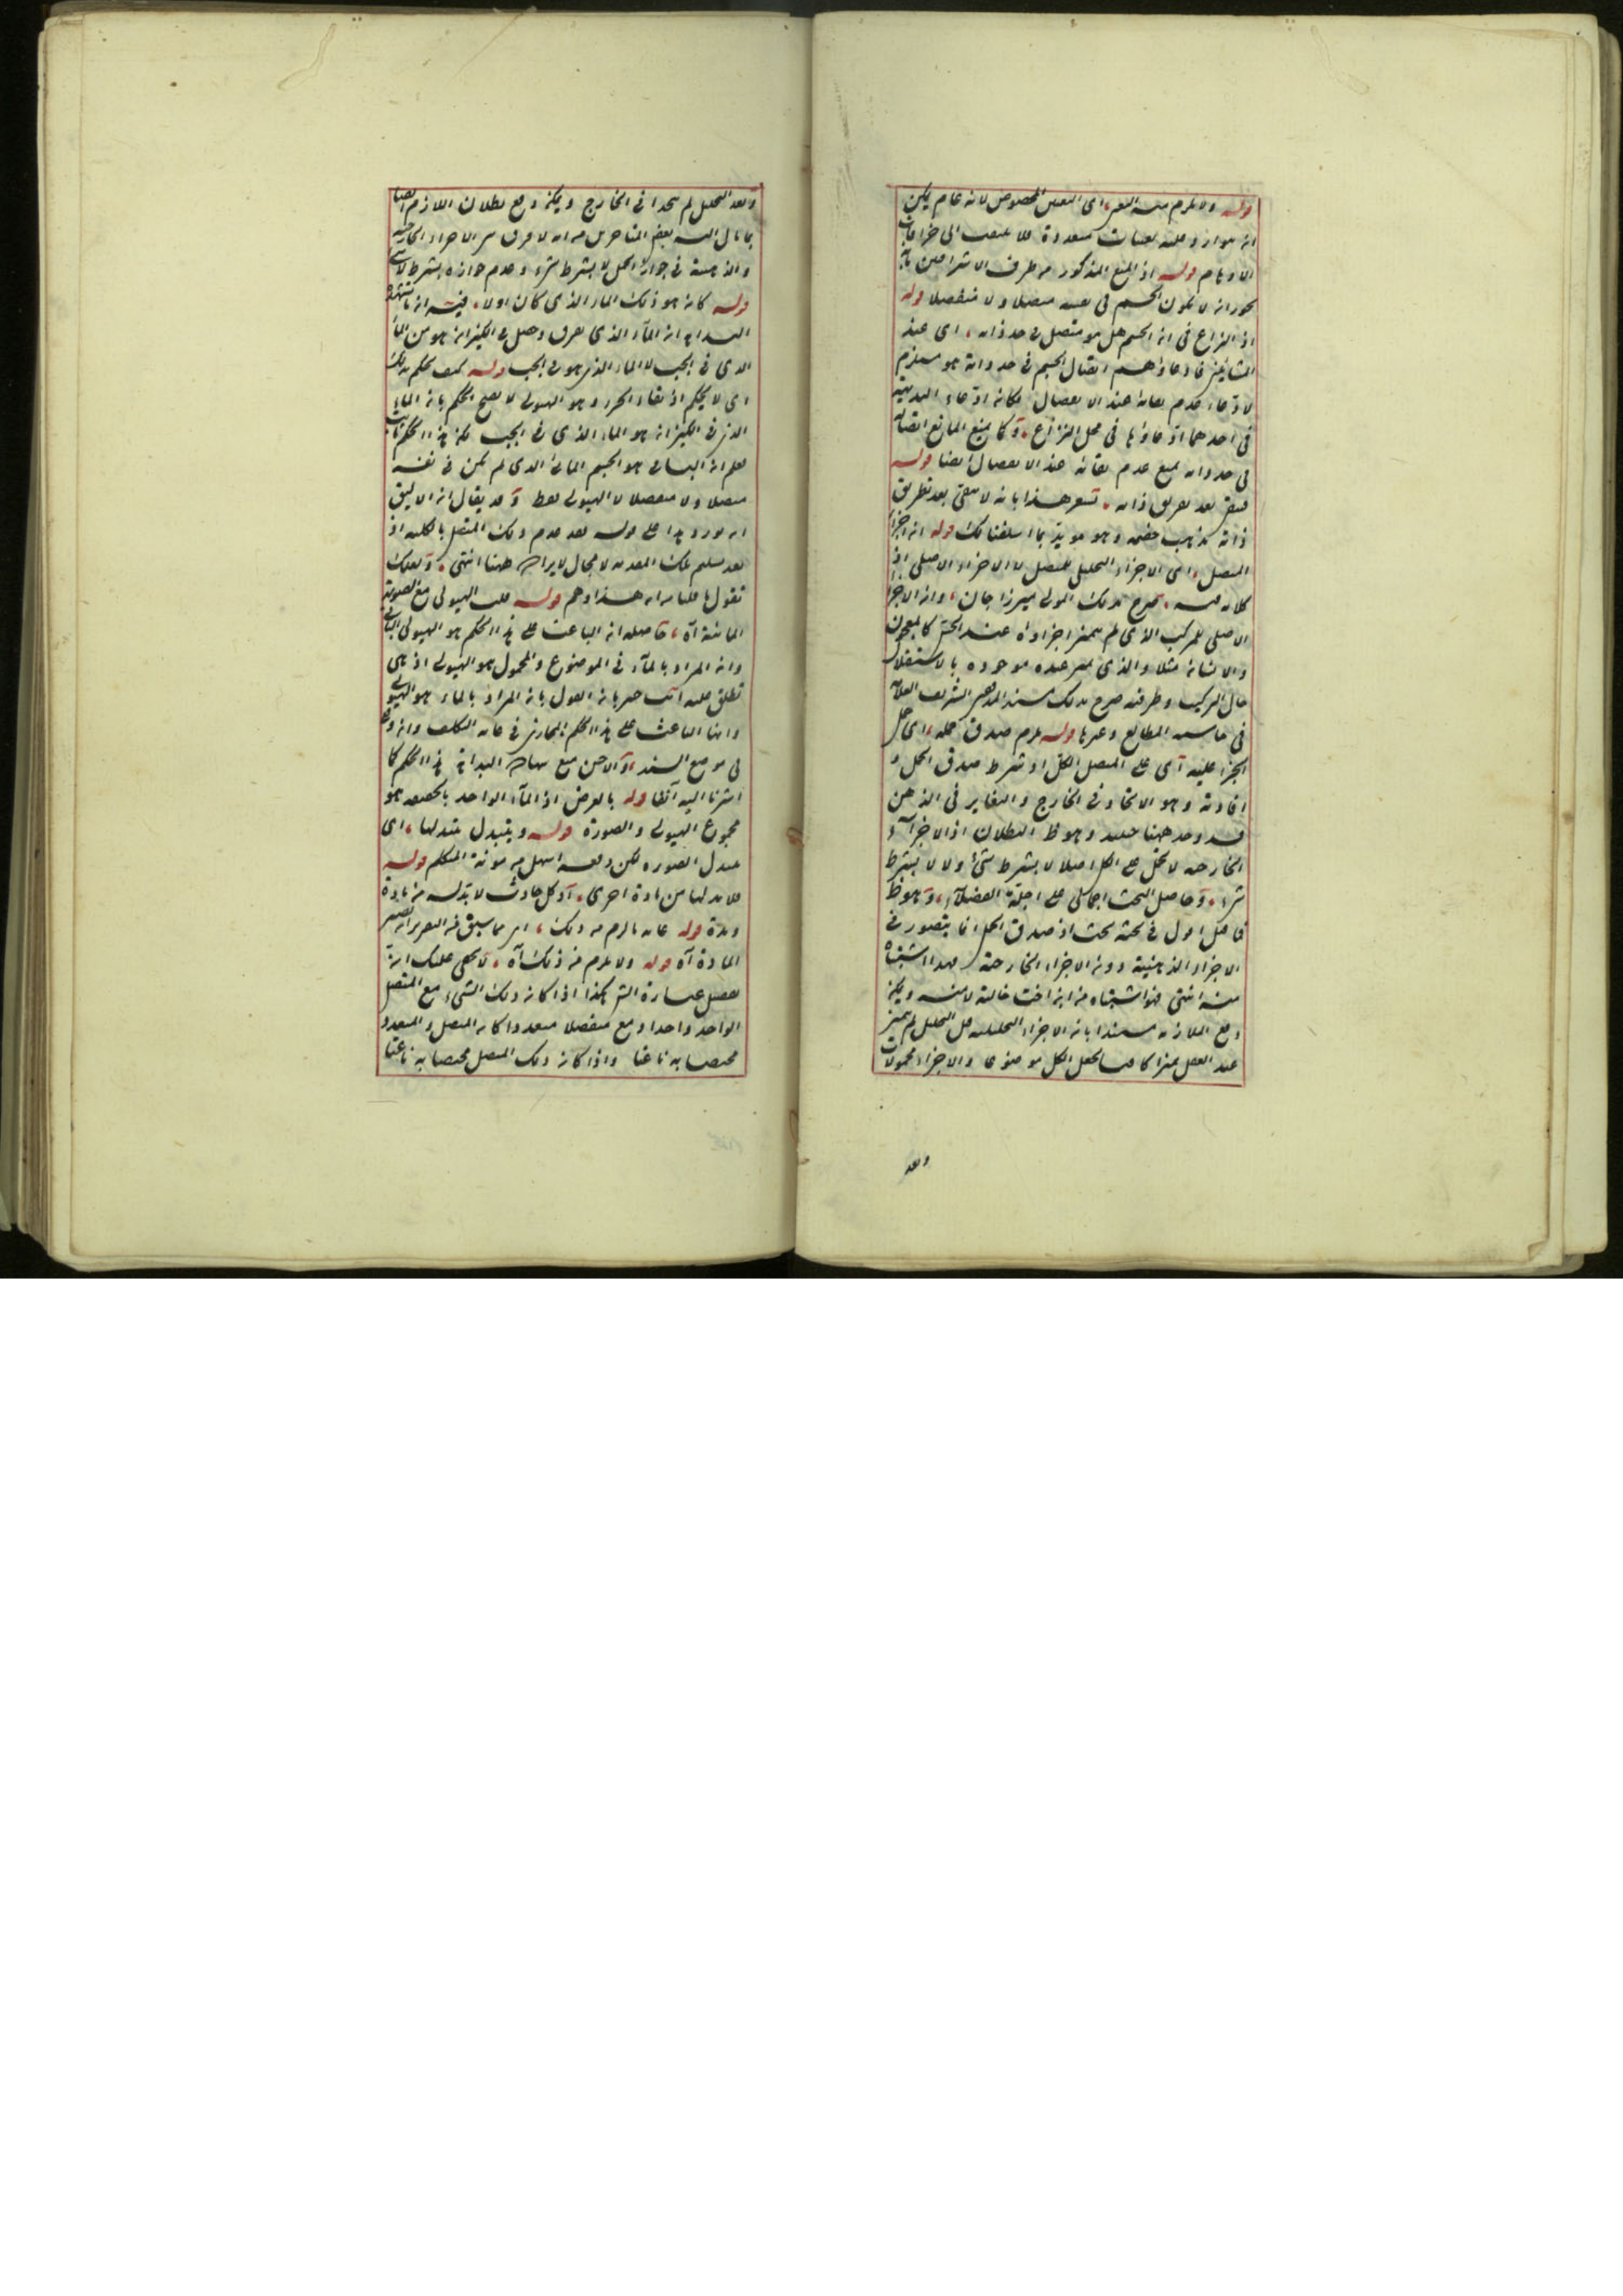 قوله ولا يلزم منه التعين، اى التعين المخصوص لانه عام يمكن
ان يتوارد عليه تعينات متعددة فلا يلتفت الى خرافات
الاوهام قوله اذ المنع المذكور من طرف الاشراقيين بانه
يجوز ان لا يكون الجسم فى نفسه متصلا ولا منفصلا قوله
اذ النزاع فى ان الجسم هل هو متصل فى حد ذاته، اى عند
المشائين فادعاؤهم اتصال الجسم فى حد ذاته هو مستلزم
لادعاء عدم بقائه عند الانفصال فكان ادعاء البديهة
فى احدهما ادعاؤها فى محل النزاع، وكما يمنع المانع اتصاله
فى حد ذاته يمنع عدم بقائه عند الانفصال ايضا قوله
بعد تفريق ذاته، تشعر هذا بانه لا يبقى بعد تفريق
ذاته مذهب خصمه وهو مويد بما اسلفنا لك قوله ان اجزاء
المتصل، اى الاجزاء التحليلى للمتصل لا الاجزاء الاصلى اذ
كلامه فيه، صرح بذلك المولى ميرزا جان، وان الاجزاء
الاصلى للمركب الذى لم يتميز اجزاؤه عند الحس كالمعجون
والانسان مثلا والذى تميز عنده موجودة بالاستقلال
حال التركيب وطرفه صرح بذلك سند المدققين الشريف العلامة
فى حاشية المطالع وغيرها قوله يلزم صدق حمله، اى حمل
الجزء عليه اى على المتصل الكل اذ شرط صدق الحمل و
افادته وهو الاتحاد فى الخارج والتغاير فى الذهن
قد وجد ههنا وهو ظ البطلان اذ الاجزاء
الخارجية لا تحمل على الكل اصلا لا بشرط شئ ولا لا بشرط
شئ، وحاصل البحث اجمالى على اجلة الفضلاء، وهو ظ
فما قيل اقول فى بحثه بحث اذ صدق الحمل انما يتصور فى
الاجزاء الذهنية دون الاجزاء الخارجية فهذا اشتباه
منه انتهى فهو اشتباه من ابن اخت خالته لا منه ويمكن
دفع الملازمة مستندا بان الاجزاء التحليلية قبل التحليل لم يتميز
عند العقل تميزا كافيا لجعل الكل موضوعا والاجزاء محمولات
وبعد
وبعد التحليل لم يتحدا فى الخارج ويمكن دفع بطلان اللازم ايضا
بما مال اليه بعض المتاخرين من انه لا فرق بين الاجزاء الخارجية
والذهنية فى جواز الحمل لا بشرط شئ وعدم جوازه بشرط لا شئ
قوله كان هو ذلك الماء الذى كان اولا، فيه ان ما تشهد
البداهة ان الماء الذى تفرق وحصل فى الكيزان هو من الماء
الذى فى الجب لا الماء الذى هو فى الجب قوله كيف يحكم بذلك
اى لا يحكم اذ بقاء الجزء وهو الهيولى لا يصح الحكم بان الماء
الذى فى الكيزان هو الماء الذى فى الجب لكن هذا الحكم ثابت
فعلم ان الباقى هو الجسم المائى الذى لم يكن فى نفسه
متصلا ولا منفصلا لا الهيولى فقط وقد يقال ان الاليق
ايراد هذا على قوله بعد عدم ذلك المتصل بالكلية اذ
بعد تسليم تلك المقدمة لا مجال لايراده ههنا انتهى، ولعلك
تقول ما قلنا من ان هذا وهم قوله قلت الهيولى مع الصورة
المائية آه، حاصله ان الباعث على هذا الحكم هو الهيولى الباقى
وان المراد بالماء فى الموضوع والمحمول هو الهيولى اذ هى
تطلق عليه انت خبير بان القول بان المراد بالماء هو الهيولى
وانها الباعث على هذا الحكم المجازى فى غاية التكلف وانه وقع
فى موضع السند، والاحسن منع شهادة البداهة هذا الحكم كما
اشرنا اليه آنفا قوله بالعرض اذ الماء الواحد بالحقيقة هو
مجموع الهيولى والصورة قوله ويتبدل بتبدلها، اى
بتبدل الصورة لكن دفعه اسهل من مونة المتكلم قوله
فلا بد لها من مادة اخرى، اذ كل حادث لا بد له من مادة
ومدة قوله غاية ما لزم من ذلك، اى مما سبق من التقرير
المادة آه قوله ولا يلزم من ذلك آه، لا يخفى عليك ان
تفصيل عبارة الشر هكذا اذا كان ذلك الشئ مع المتصل
الواحد واحدا ومع منفصلا متعددا كان المتصل والمتعدد
مختصا به ناعتا واذا كان ذلك المتصل مختصا به ناعتا